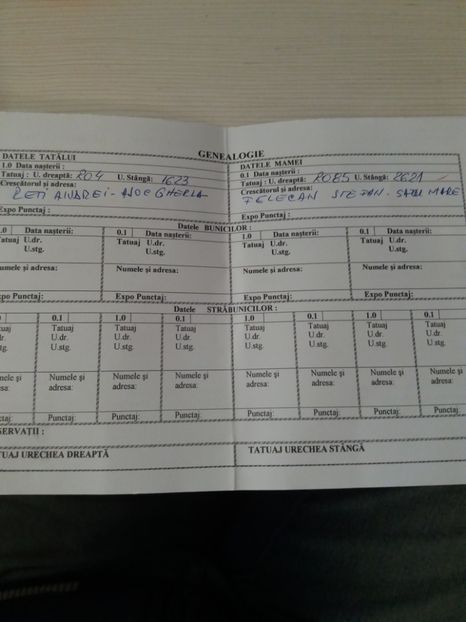 GENEALOGIE
DATELE TATĂLUI
1.0 Data nașterii :
Tatuaj : U. dreaptă: RO4 U. Stângă: 1623
Crescătorul și adresa:
ANDREI - AJOC GHERLA
Expo Punctaj :
DATELE MAMEI
0.1 Data nașterii :
Tatuaj : U. dreaptă: U. Stângă: 2621
Crescătorul și adresa:
FELECAN STEFAN - SATU MARE
Expo Punctaj :
Datele BUNICILOR :
.0 Data nașterii: 0.1 Data nașterii: 1.0 Data nașterii: 0.1 Data nașterii:
Tatuaj U.dr. Tatuaj U.dr. Tatuaj U.dr. Tatuaj U.dr.
U.stg. U.stg. U.stg. U.stg.
Numele și adresa: Numele și adresa: Numele și adresa: Numele și adresa:
Expo Punctaj: Expo Punctaj: Expo Punctaj: Expo Punctaj:
Datele STRĂBUNICILOR :
0.1 1.0 0.1 1.0 0.1 1.0 0.1
tuaj Tatuaj Tatuaj Tatuaj Tatuaj Tatuaj Tatuaj
dr. U.dr. U.dr. U.dr. U.dr. U.dr. U.dr. U.dr.
stg. U.stg. U.stg. U.stg. U.stg. U.stg. U.stg. U.stg.
mele și Numele și Numele și Numele și Numele și Numele și Numele și Numele și
esa: adresa: adresa: adresa: adresa: adresa: adresa: adresa:
ctaj: Punctaj: Punctaj: Punctaj: Punctaj: Punctaj: Punctaj: Punctaj:
SERVAȚII :
TUAJ URECHEA DREAPTĂ
TATUAJ URECHEA STÂNGĂ